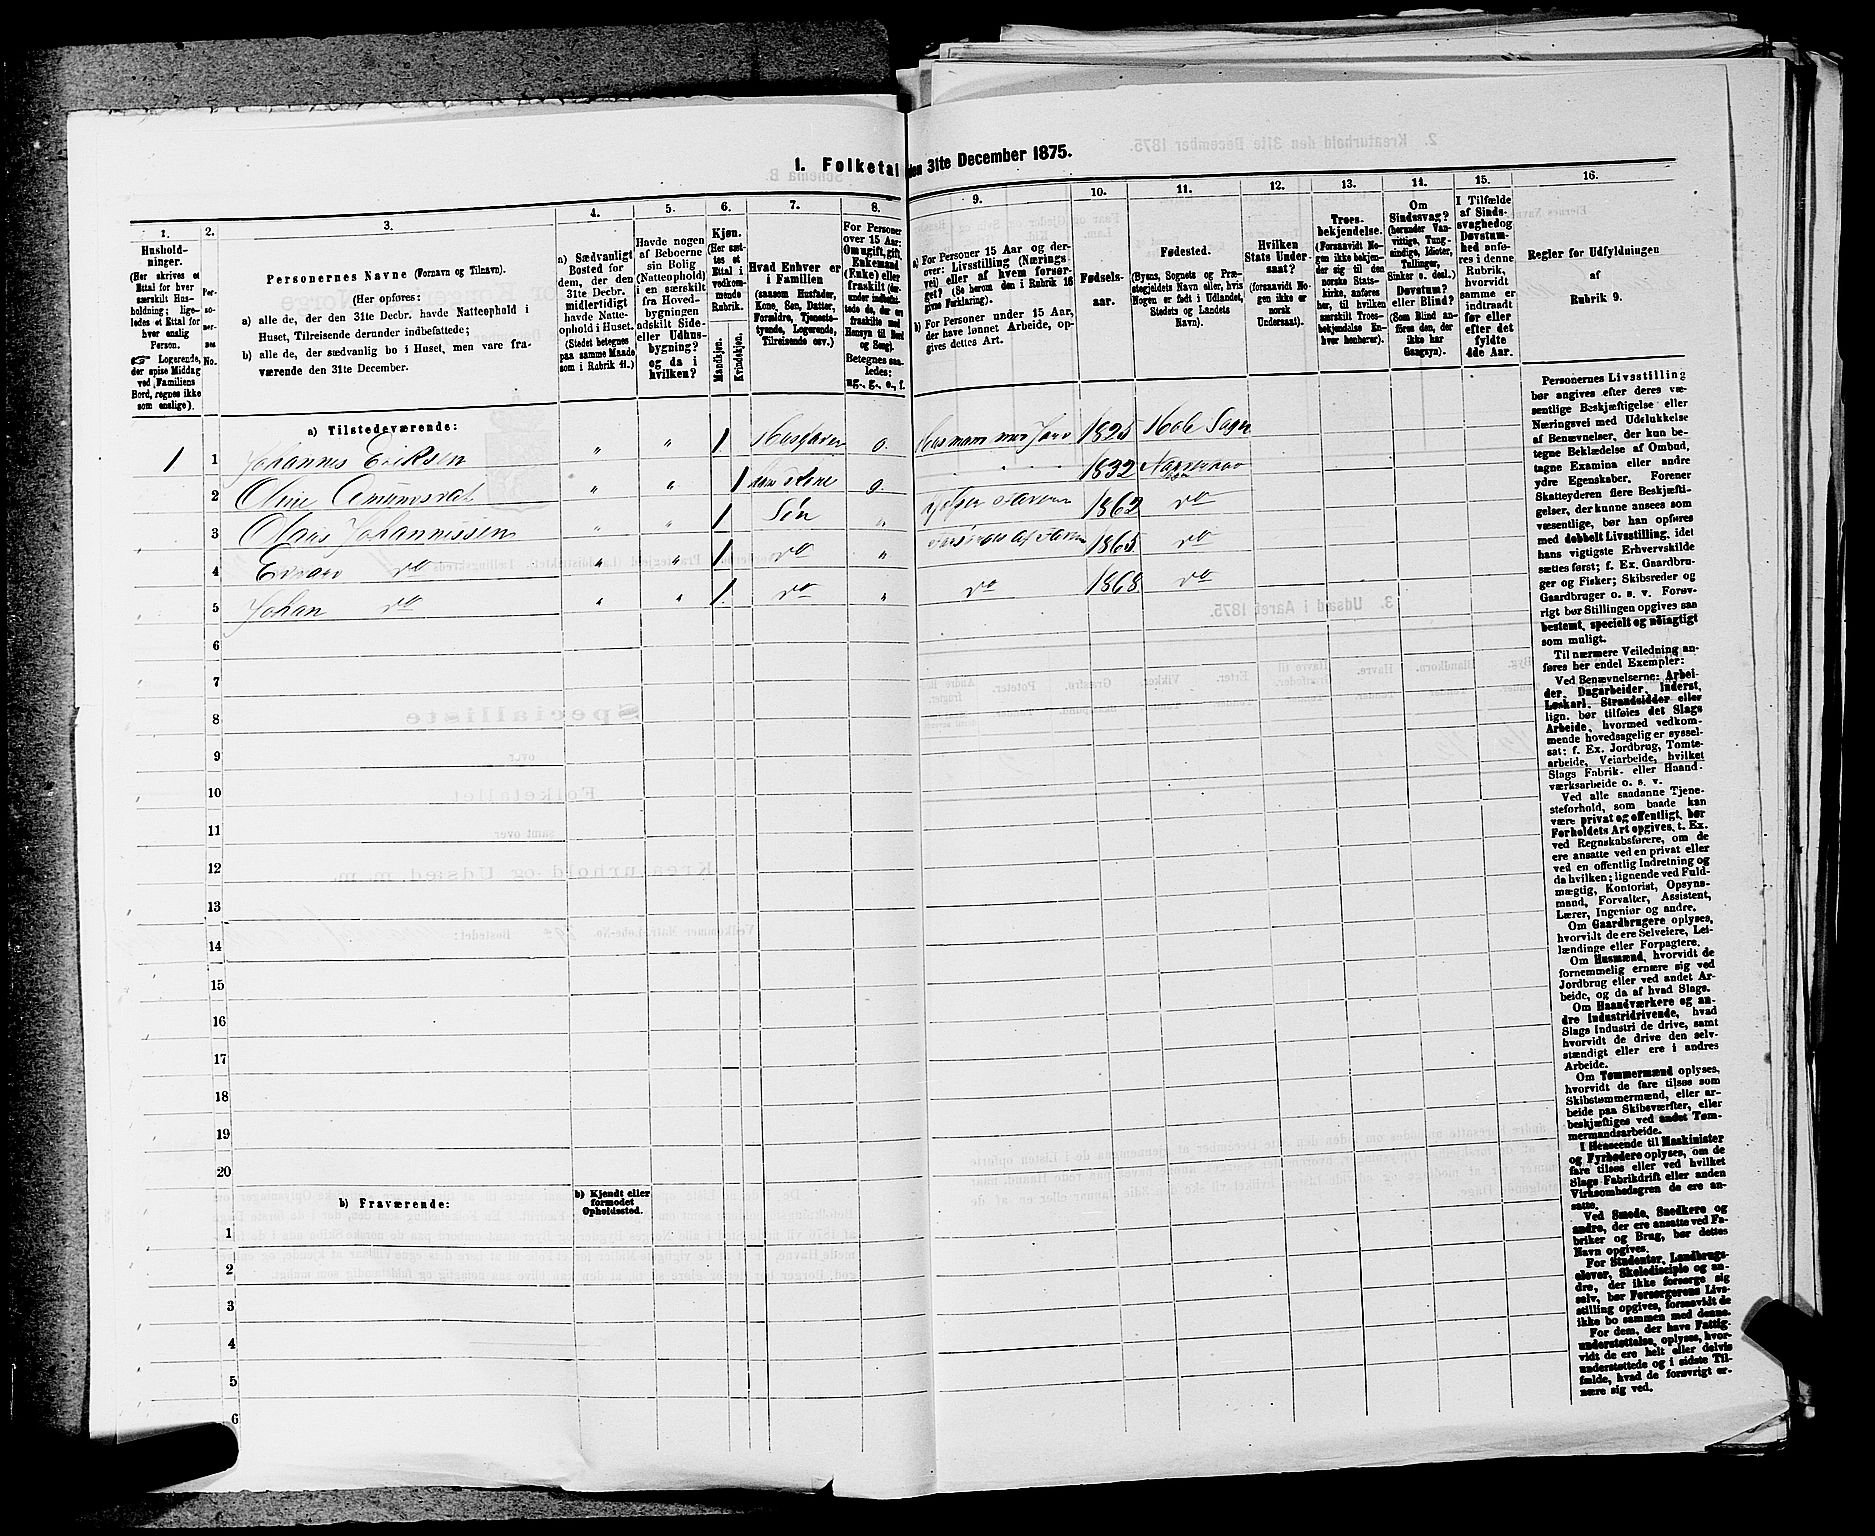 1. Folketal den 31te December 1875.
1. 2. 3. 4. 5. 6. 7. 8. 9. 10. 11. 12. 13. 14. 15. 16.
Hushold-
ninger.
(Her skrives et
Ettal for hver
særskilt Hus-
holdning; lige-
ledes et Ettal for
hver enslig
Person.
☞ Logerende,
der spise Middag
ved Familiens
Bord, regnes ikke
som enslige).
Per-
so-
ner-
nes
No.
Personernes Navne (Fornavn og Tilnavn).
(Her opføres:
a) alle de, der den 31te Decbr. havde Natteophold i
Huset, Tilreisende derunder indbefattede;
b) alle de, der sædvanlig bo i Huset, men vare fra-
værende den 31te December.
a) Sædvanligt
Bosted for
dem, der den
31te Decbr.
midlertidigt
havde Natte-
ophold i Huset.
(Stedet betegnes
paa samme Maade
som i Rubrik 11.)
Havde nogen
af Beboerne
sin Bolig
(Natteophold)
i en særskilt
fra Hoved-
bygningen
adskilt Side-
eller Udhus-
bygning?
og da i
hvilken?
Kjøn.
(Her sæt-
tes et
Ettal i
vedkom-
mende
Rubrik.
Mandkjøn.
Kvindekjøn.
Hvad Enhver er
i Familien
(saasom Husfader,
Kone, Søn, Datter,
Forældre, Tjeneste-
tyende, Logerende,
Tilreisende osv.)
For Personer
over 15 Aar:
Om ugift, gift,
Enkemand
(Enke) eller
fraskilt
Betegnes saa-
ledes:
ug., g., e., f.
a) For Personer 15 Aar og der-
over: Livsstilling (Nærings-
vei) eller af hvem forsør-
get? (Se herom den i Rubrik 16
givne Forklaring).
b) For Personer under 15 Aar,
der have lønnet Arbeide, op-
gives dettes Art.
Fødsels-
aar.
Fødested.
(Byens, Sognets og Præ-
stegjeldets Navn eller, hvis
Nogen er født i Udlandet,
Stedets og Landets
Navn).
Hvilken
Stats Under-
saat?
(forsaavidt No-
gen ikke er
norsk
Undersaat).
Troes-
bekjendelse.
(Forsaavidt No-
gen ikke bekjen-
der sig til den
norske Stats-
kirke, anføres
her, til hvilken
særskilt Troes-
bekjendelse En-
hver henhører).
Om
Sindssvag?
(herunder Van-
vittige, Tung-
sindige, Idioter,
Tullinger,
Sinker o. desl.)
Døvstum?
eller Blind?
(Som Blind an-
føres den, der
ikke har
Gangsyn).
I Tilfælde
af Sinds-
svaghed og
Døvstum-
hed anfø-
res i denne
Rubrik,
hvorvidt
samme er
indtraadt
før eller
efter det
fyldte
4de Aar.
Regler for Udfyldningen
af
Rubrik 9.
a) Tilstedeværende:
1 1 Johannes Eriksen „ „ 1 Husfader g. Husmand med Jord 1825 Hole Sogn
2 Oline Amundsdat „ „ 1 hans Kone g. 1832
3 Johannessen „ „ 1 Søn „ 1862 do
4 do „ „ 1 do „ 1865 do
5 Johan do „ „ 1. do „ do 1868 do
6
7
8
9
10
11
12
13
14
15
16
17
18
19
20
b) Fraværende:
b) Kjendt eller
formodet
Opholdssted.
1
2
3
4
5
6
Personernes Livsstilling
bør angives efter deres væ-
sentlige Beskjæftigelse eller
Næringsvei med Udelukkelse
af Benævnelser, der kun be-
tegne Beklædelse af Ombud,
tagne Examina eller andre
ydre Egenskaber. Forener
Skatteyderen flere Beskjæfti-
gelser, der kunne ansees som
væsentlige, bør han opføres
med dobbelt Livsstilling, idet
hans vigtigste Erhvervskilde
sættes først; f. Ex. Gaardbru-
ger og Fisker; Skibsreder og
Gaardbruger o. s. v. Forøv-
rigt bør Stillingen opgives saa
bestemt, specielt og nøiagtigt
som muligt.
Til nærmere Veiledning an-
føres her endel Exempler:
Ved Benævnelserne: Arbei-
der, Dagarbeider, Inderst,
Løskarl, Strandsidder eller
lign. bør tilføies det Slags
Arbeide, hvormed vedkom-
mende hovedsagelig er syssel-
sat; f. Ex. Jordbrug, Tomte-
arbeide, Veiarbeide, hvilket
Slags Fabrik- eller Haand-
værksarbeide o. s. v.
Ved alle saadanne Tjene-
steforhold, som baade kan
være privat og offentligt, bør
Forholdets Art opgives, t. Ex.
ved Regnskabsførere, om de
ere ansatte ved en privat eller
ved en offentlig Indretning og
da hvilken; lignende ved Fuld-
mægtig, Kontorist, Opsyns-
mand, Forvalter, Assistent,
Lærer, Ingeniør og andre.
Om Gaardbrugere oplyses,
hvorvidt de ere Selveiere, Lei-
lændinge eller Forpagtere.
Om Husmænd, hvorvidt de
fornemmelig ernære sig ved
Jordbrug eller ved andet Ar-
beide, og da af hvad Slags.
Om Haandværkere og an-
dre Industridrivende, hvad
Slags Industri de drive, samt
hvorvidt de drive den selv-
stændigt eller ere i andres
Arbeide.
Om Tømmermænd oplyses,
hvorvidt de fare tilsøs som
Skibstømmermænd, eller ar-
beide paa Skibsværfter, eller
beskjæftiges ved andet Tøm-
mermandsarbeide.
I Henseende til Maskinister
og Fyrbødere oplyses, om de
fare tilsøs eller ved hvilket
Slags Fabrikdrift eller anden
Virksomhedsgren de ere an-
satte.
Ved Smede, Snedkere og
andre, der ere ansatte ved Fa-
briker og Brug, bør dettes
Navn opgives.
For Studenter, Landbrugs-
elever, Skoledisciple og an-
dre, der ikke forsørge sig
selv, bør Forsørgerens Livs-
stilling opgives, forsaavidt de
ikke bo sammen med denne.
For dem, der have Fattig-
understøttelse, oplyses, hvor-
vidt de ere helt eller delvis
understøttede og i sidste Til-
fælde, hvad de forøvrigt er-
nære sig ved.